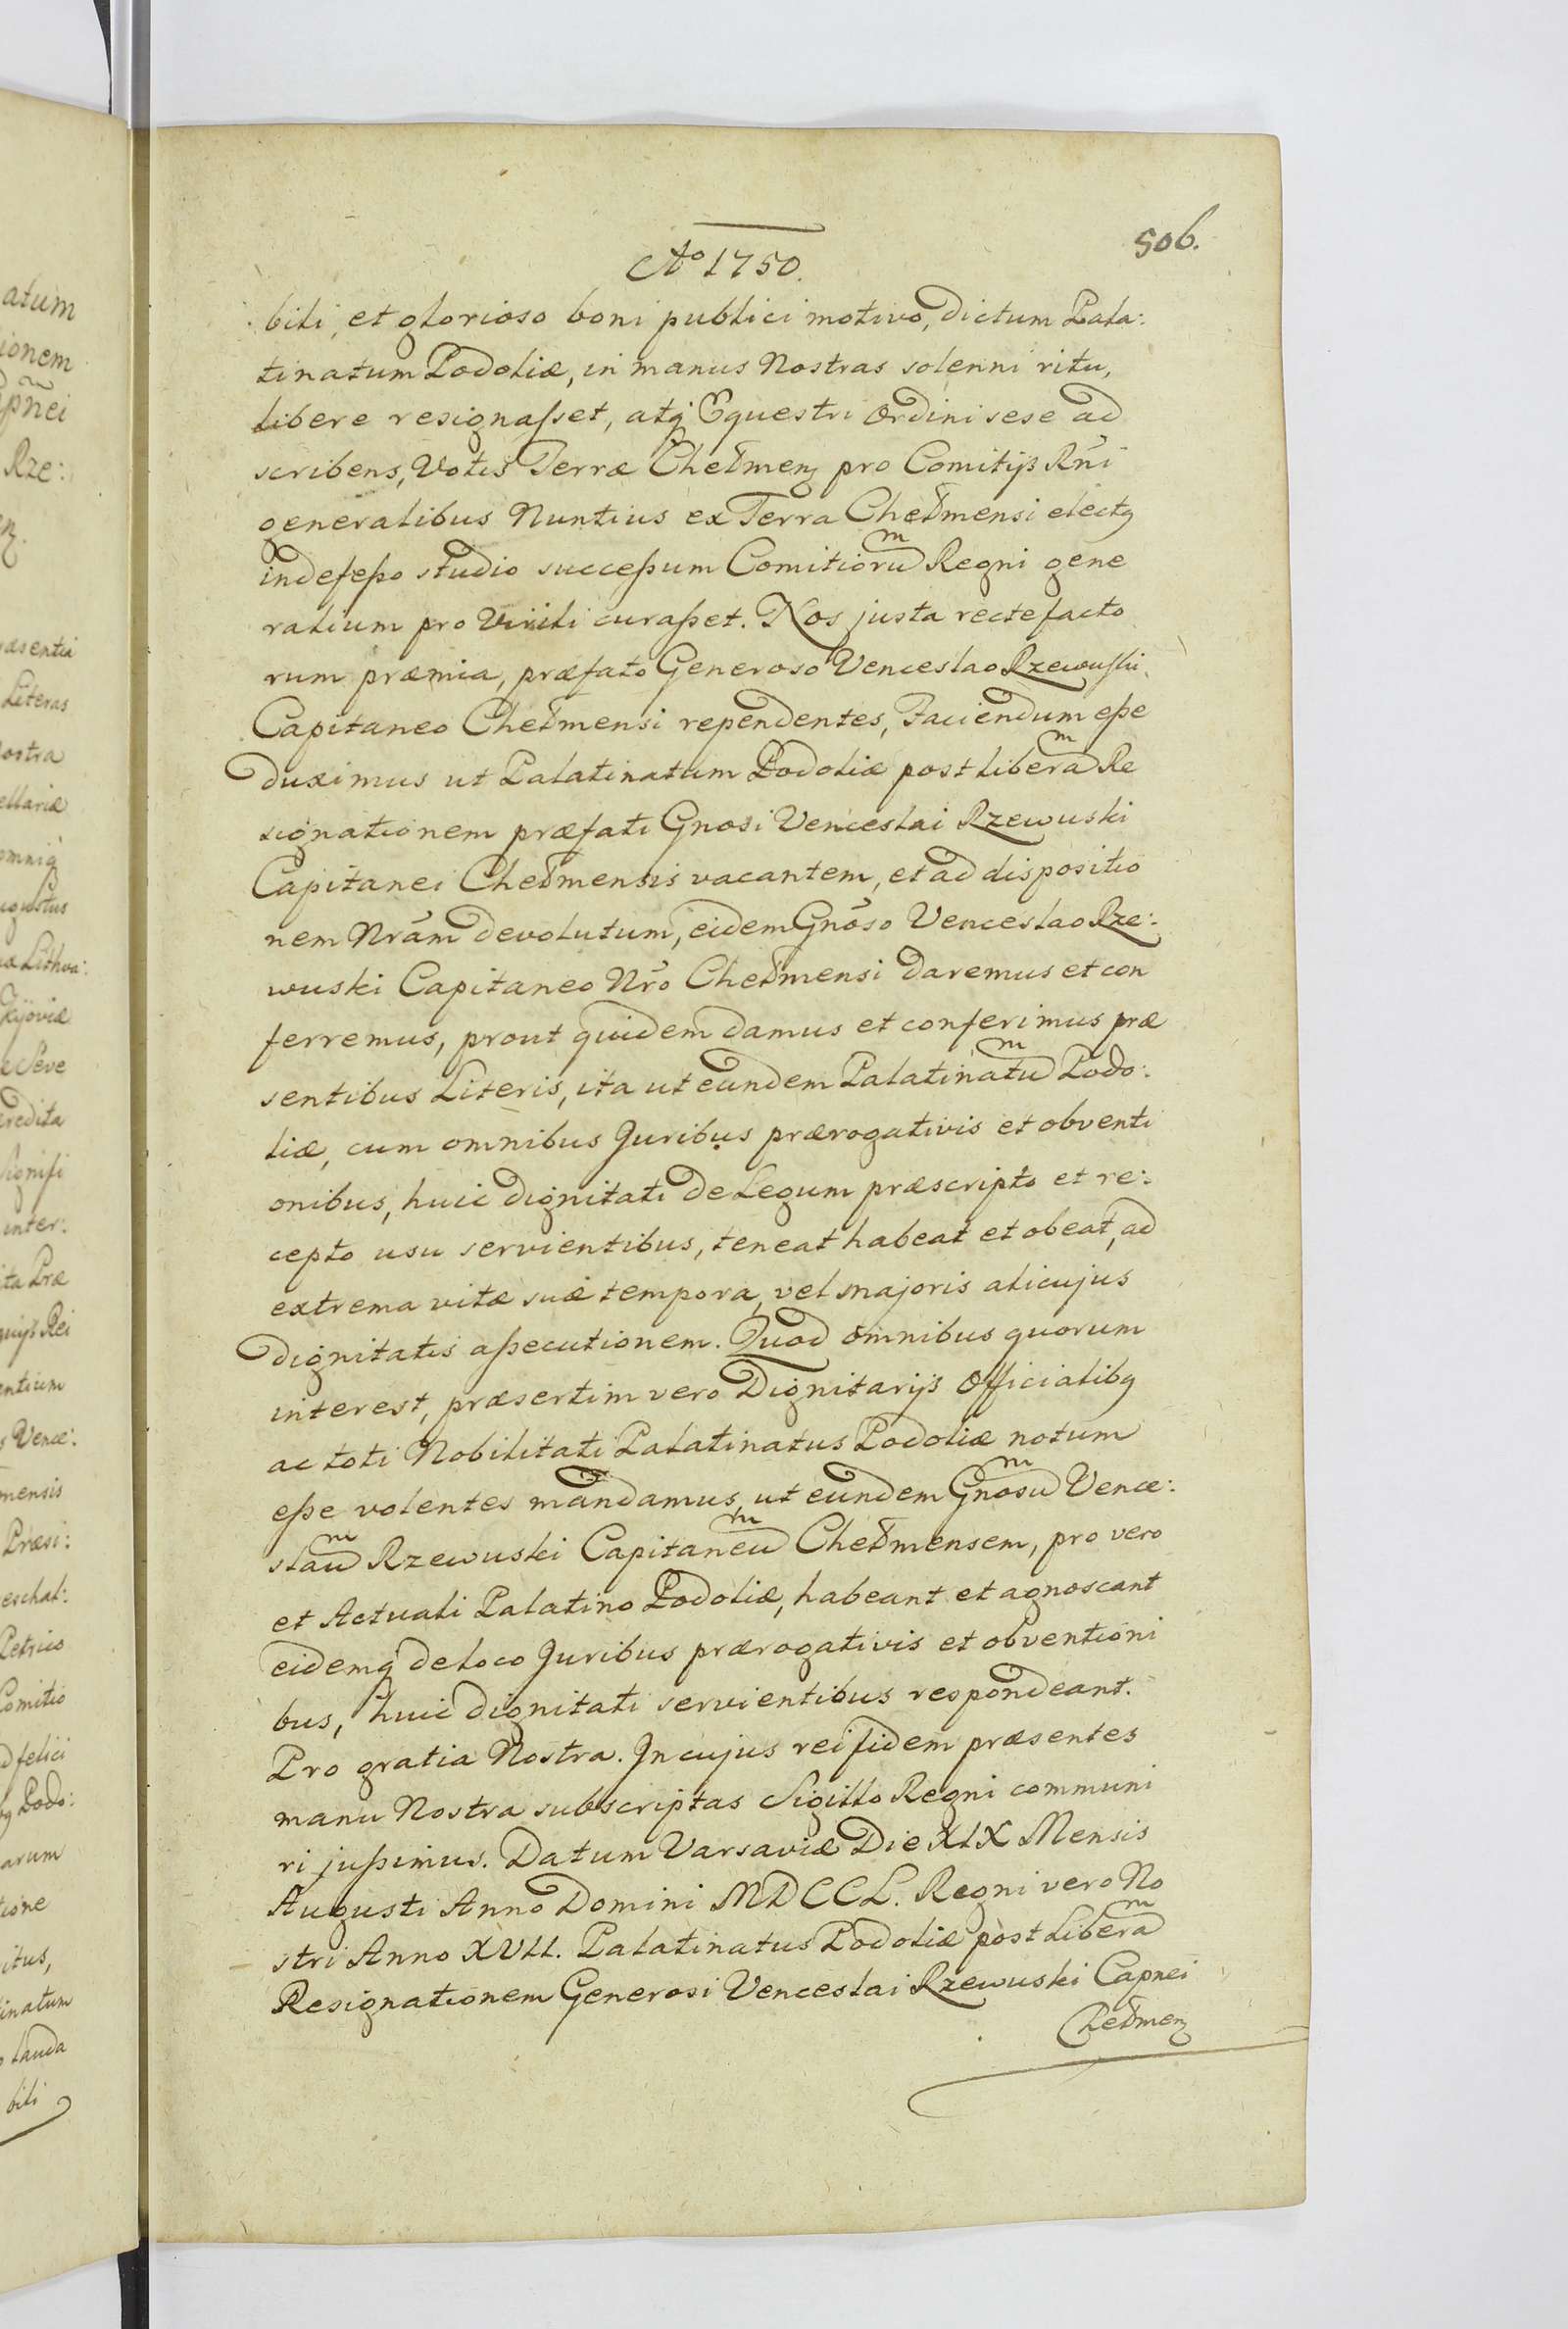 506.
Aͦ 1750.
bili, et glorioso boni publici motivo, dictum Pala:
tinatum Podoliæ, in manus Nostras solenni ritu,
libere resignaſset, atq́ Equestri Ordini sese ad
scribens, Votis Terræ Chełmenſ pro Comitijs Rñi
generalibus Nuntius ex Terra Chełmensi electꝰ
indefeßo studio succeßum Comitiorũ Regni gene
ralium pro Virili curaßet. Nos justa recte facto
rum præmia, præfato Generoso Venceslao Rzewuski
Capitaneo Chełmensi rependentes, Faciendum eße
duximus ut Palatinatum Podoliæ post liberã Re
signationem præfati Gnosi Venceslai Rzewuski
Capitanei Chełmensis vacantem, et ad dispositio
nem Nrãm devolutum, eidem Gnõso Venceslao Rze:
wuski Capitaneo Nrõ Chełmensi daremus et con
ferremus, prout quidem damus et conferimus præ
sentibus Literis, ita ut eundem Palatinatũ Podo:
liæ, cum omnibus Juribus prærogativis et obventi
onibus, huic dignitati de Legum præscripto et re:
cepto usu servientibus, teneat habeat et obeat, ad
extrema vitæ suæ tempora, vel majoris alicujus
dignitatis aßecutionem. Quod omnibus quorum
interest, præsertim vero Dignitarijs Officialibꝰ
ac toti Nobilitati Palatinatus Podoliæ notum
eße volentes mandamus, ut eundem Gnosũ Vence:
slaũ Rzewuski Capitaneũ Chełmensem, pro vero
et Actuali Palatino Podoliæ, habeant et agnoscant
eidemq́ de loco Juribus prærogativis et obventioni
bus, huic dignitati servientibus respondeant.
Pro gratia Nostra. In cujus rei fidem præsentes
manu Nostra subscriptas Sigillo Regni communi
ri jußimus. Datum Varsaviæ Die XIX Mensis
Augusti Anno Domini MDCCL. Regni vero No
stri Anno XVII. Palatinatus Podoliæ post liberã
Resignationem Generosi Venceslai Rzewuski Capnei
Chełmenſ